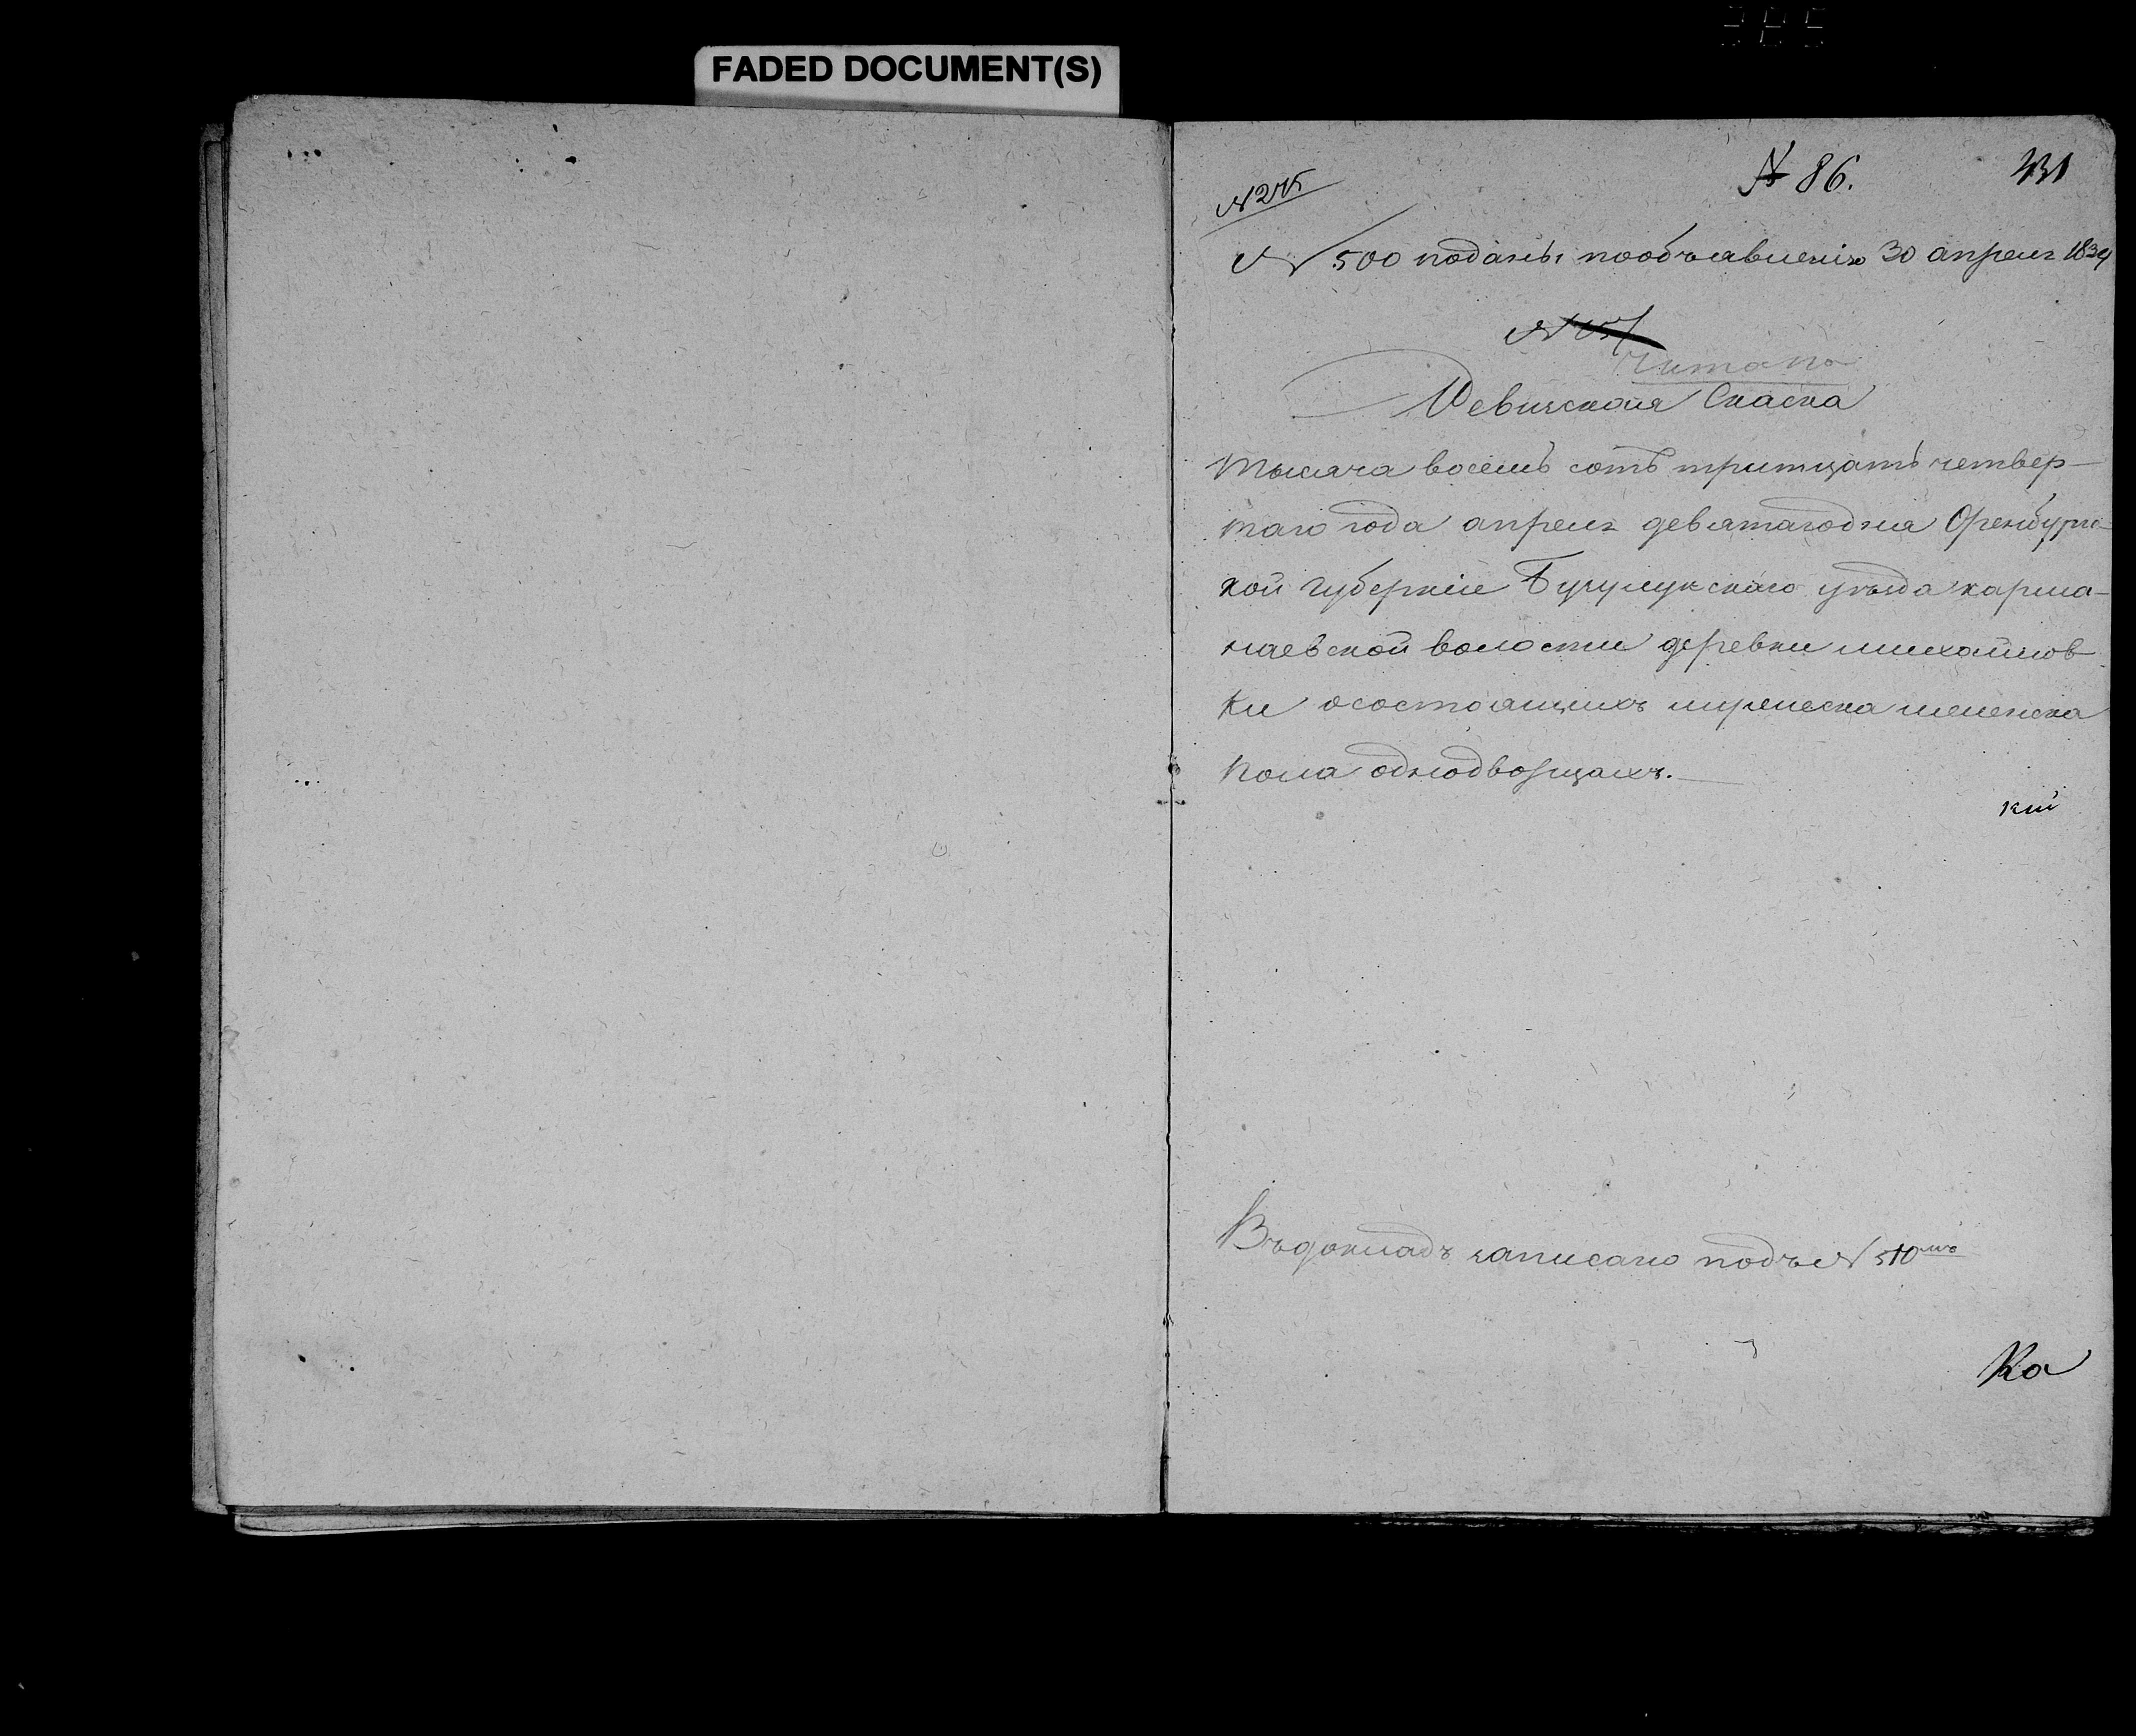 FADED DOCUMENT(S)
№ 86.
431
№ 500 поданы пообъявленію 30 апреля 1834
Читано
Ревизская Скаска
Тысяча восемь сотъ тритцать четвер-
таго года апреля девятагодня Оренбургс-
кой губерніи Бугульминскаго уезда карма-
лаевской волости деревни михайлов
ки осостоящихъ мужеска женска
пола однодворцахъ.
кій
Въдокладъ записано подъ № 510мъ
Ка